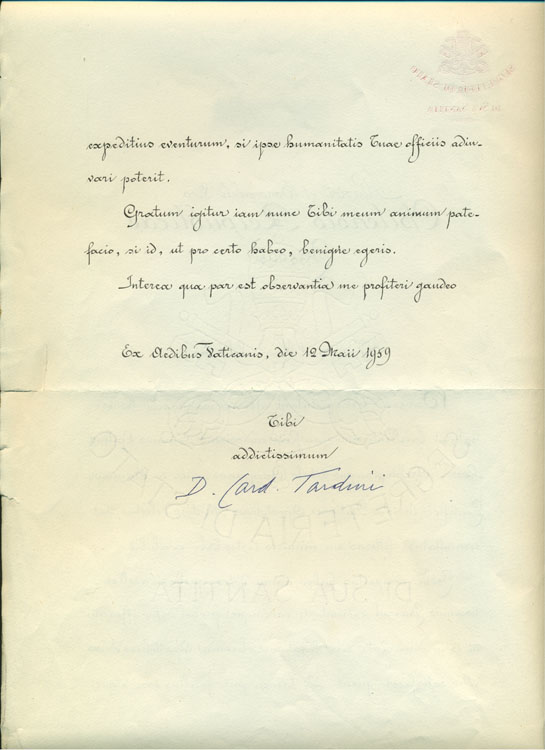 expeditius eventurum, si ipse humanitatis Tuae officiis adiu-
vari poterit.
Gratum igitur iam nunc Tibi meum animum pate-
facio, si id, ut pro certo habeo, benigne egeris.
Interea qua par est observantia me profiteri gaudeo
Ex Aedibus Vaticanis, die 12 Maii 1959
Tibi
addictissimum
D. Card. Tardini
DI SUA SANTITÀ